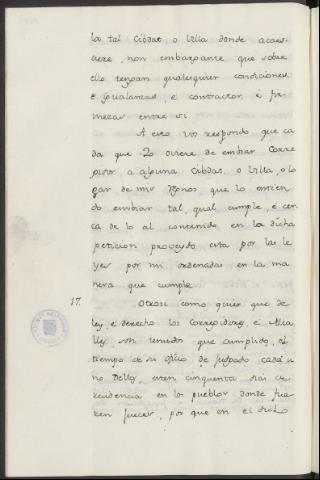 la tal Cibdat, o Villa donde acaes-
ciere, non embargante que sobre
ello tengan qualesquier condiciones
e igualanzas, e contractos, e fir-
mezas entre si.
A esto vos respondo que ca
da que Yo oviere de embiar Corre
gidor a alguna Cibdat, o Villa, o lo
gar de mis Regnos que lo entien
do embiar tal qual cumple, e cer
ca de lo al contenido en la dicha
peticion proveydo esta por las le
yes por mi ordenadas en la ma
nera que cumple.
17. Otrosi como quier que de
ley, e derecho los Corregidores, é Alca
lles, son tenudos que cumplido, el
tiempo de su oficio de judgado cada u
no dellos, esten cinquenta dias de
residencia en los pueblos donde fue
ren jueces, por que en el dicho